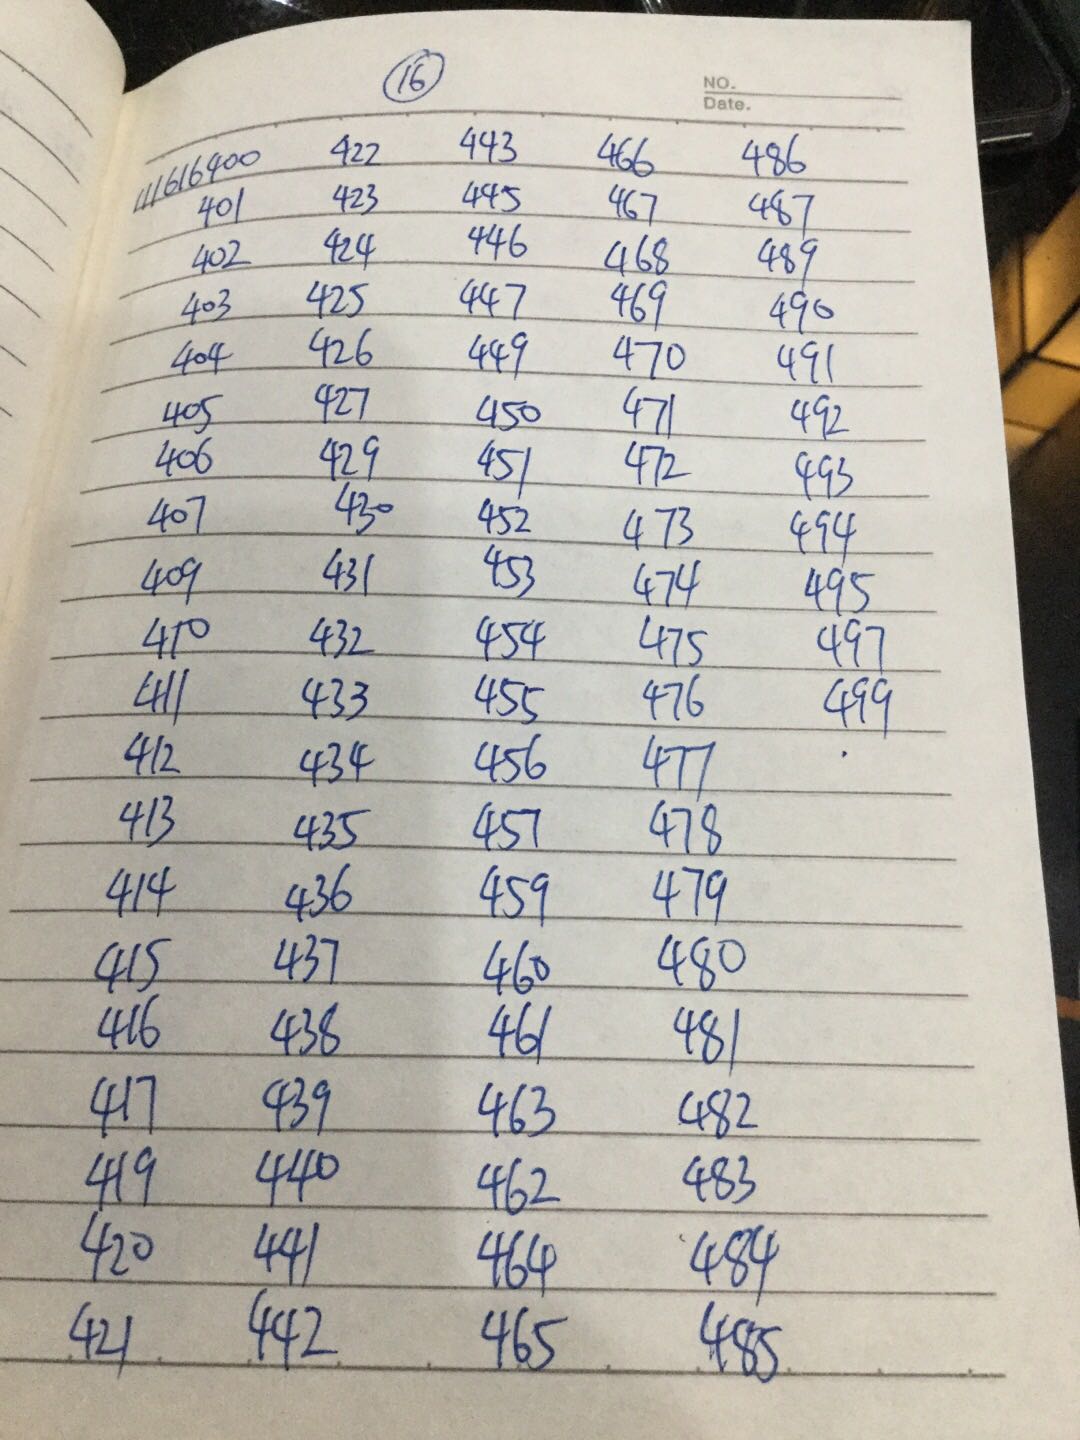 16
NO.
Date.
111616400 422 443 466 486
401 423 445 467 487
402 424 446 468 489
403 425 447 469 490
404 426 449 470 491
405 427 450 471 492
406 429 451 472 493
407 430 452 473 494
409 431 453 474 495
410 432 454 475 497
411 433 455 476 499
412 434 456 477
413 435 457 478
414 436 459 479
415 437 460 480
416 438 461 481
417 439 463 482
419 440 462 483
420 441 464 484
421 442 465 485